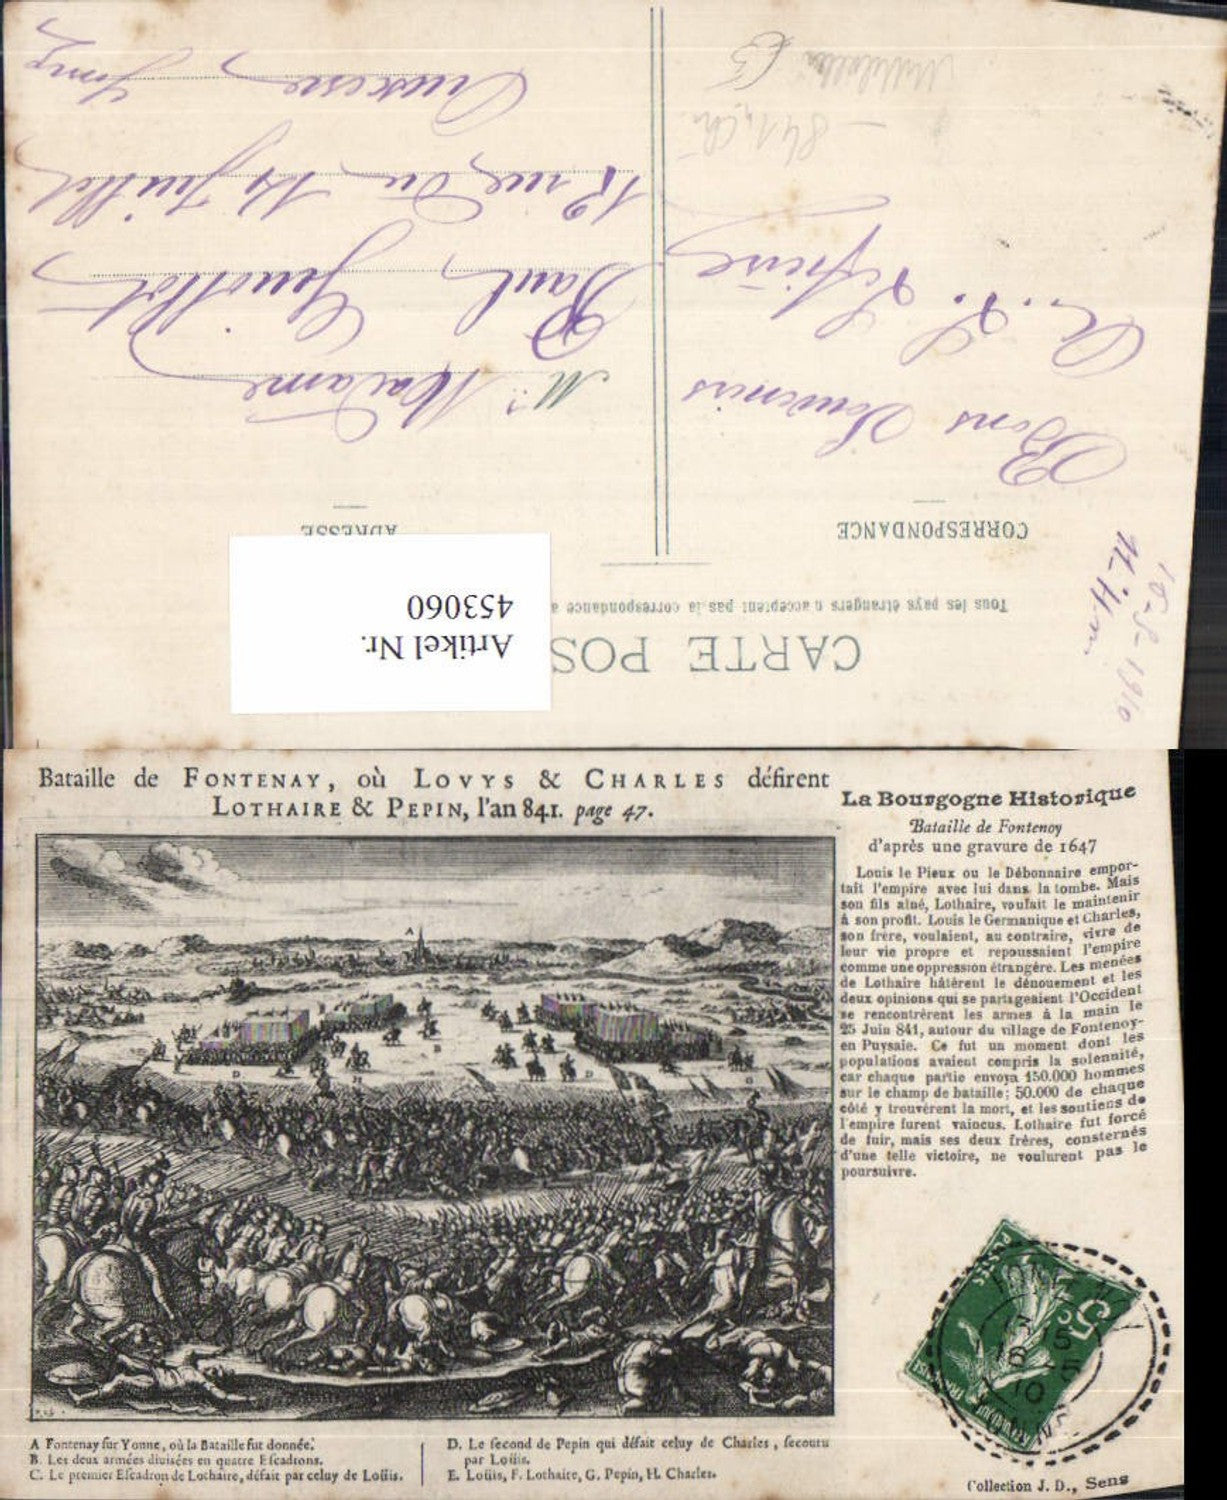 CARTE POS
Tous les pays étrangers n'acceptent pas la correspondance a
CORRESPONDANCE
ADRESSE
Artikel Nr.
453060
10-5-1910
Bons Souvenirs
Mᵐ Madame
Paul
12 rue du 14 Juillet
Auxerre
841
Bataille de FONTENAY, où LOVYS & CHARLES défirent
LOTHAIRE & PEPIN, l'an 841. page 47.
La Bourgogne Historique
Bataille de Fontenoy
d'après une gravure de 1647
Louis le Pieux ou le Débonnaire empor-
tait l'empire avec lui dans la tombe. Mais
son fils aîné, Lothaire, voulait le maintenir
à son profit. Louis le Germanique et Charles,
son frère, voulaient, au contraire, vivre de
leur vie propre et repoussaient l'empire
comme une oppression étrangère. Les menées
de Lothaire hâtèrent le dénouement et les
deux opinions qui se partageaient l'Occident
se rencontrèrent les armes à la main le
25 Juin 841, autour du village de Fontenoy-
en Puysaie. Ce fut un moment dont les
populations avaient compris la solennité,
car chaque partie envoya 150.000 hommes
sur le champ de bataille; 50.000 de chaque
côté y trouvèrent la mort, et les soutiens de
l'empire furent vaincus. Lothaire fut forcé
de fuir, mais ses deux frères, consternés
d'une telle victoire, ne voulurent pas le
poursuivre.
A
B
D
H
D
G
5c
POSTES
A Fontenay sur Yonne, où la Bataille fut donnée.
B. Les deux armées divisées en quatre Escadrons.
C. Le premier Escadron de Lochaire, défait par celuy de Loüis.
D. Le second de Pepin qui défait celuy de Charles, secouru
par Loüis.
E. Loüis, F. Lothaire, G. Pepin, H. Charles.
Collection J. D., Sens